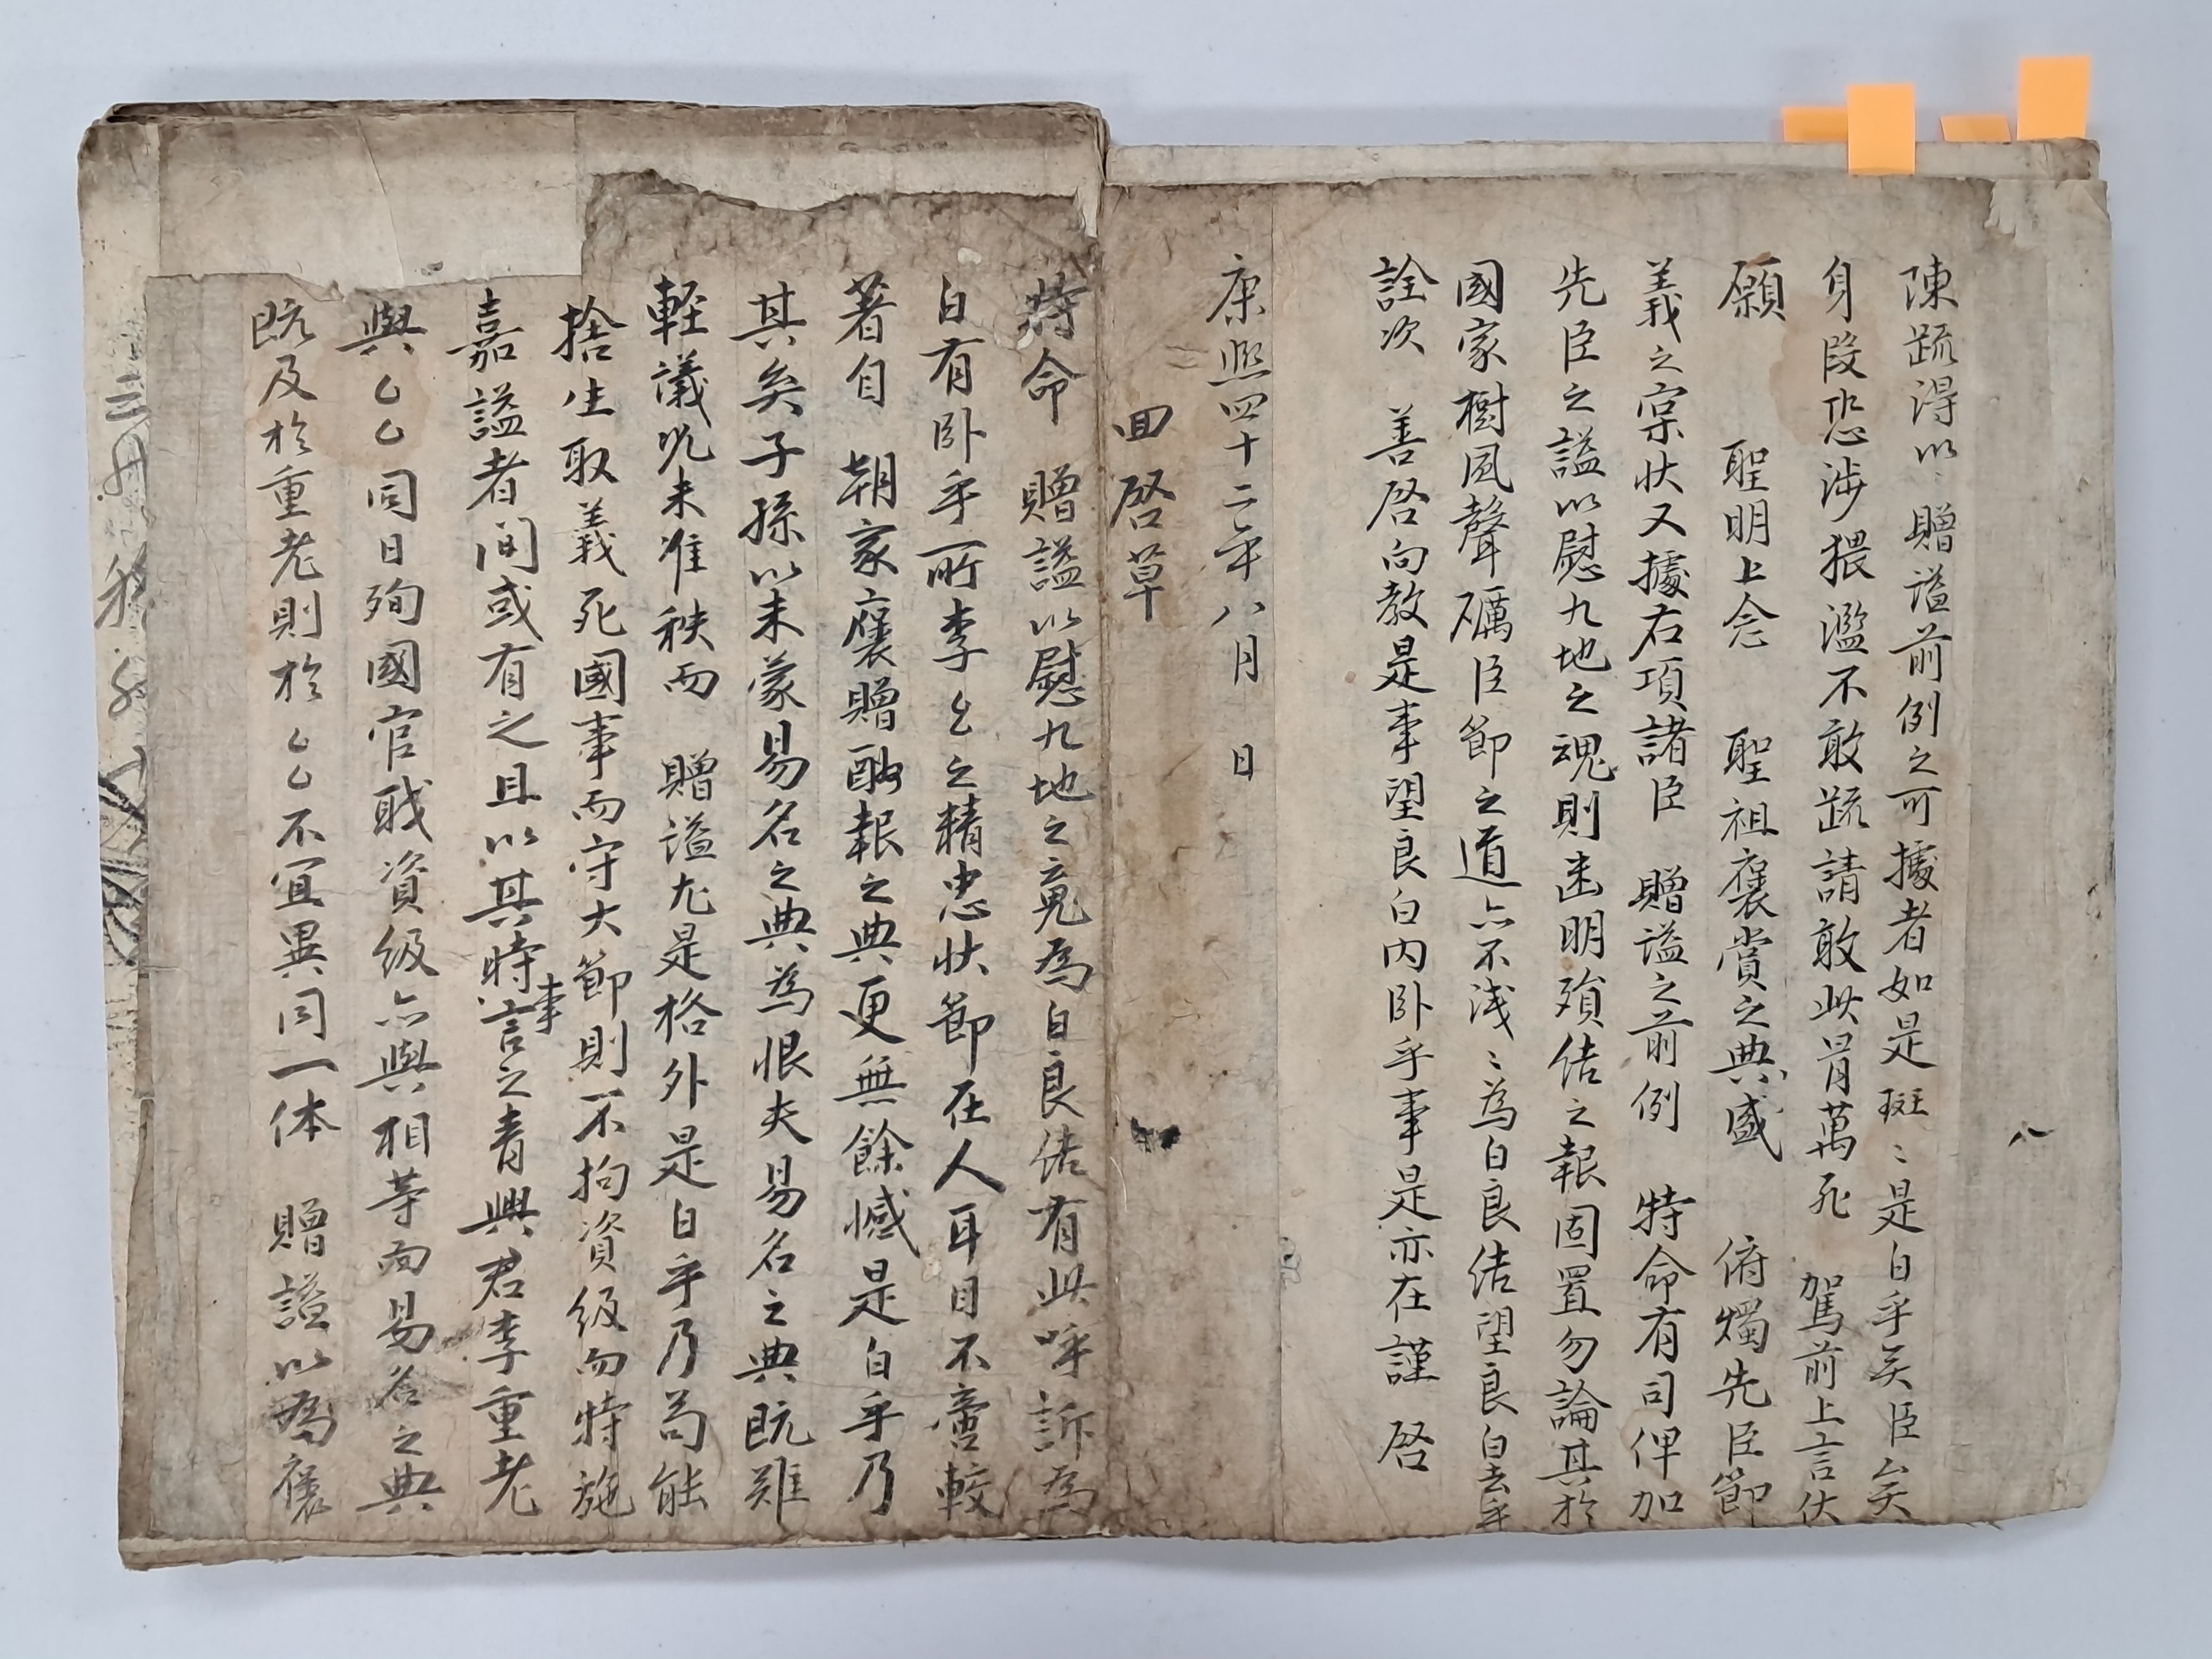 陳疏得以 贈謚前例之可據者如是斑〻是白乎矣臣矣
身段恐涉猥濫不敢疏請敢此冒萬死 駕前上言伏
願 聖明上念 聖祖褒賞之典盛 俯燭先臣節
義之宲狀又據右項諸臣 贈謚之前例 特命有司俾加
先臣之謚以慰九地之魂則幽明殞結之報固置勿論其於
國家樹風聲礪臣節之道亦不淺〻為白良結望良白去乎
詮次 善啓向教是事望良白內臥乎事是亦在謹 啓
康熙四十二年八月 日
回啓草
特命 贈謚以慰九地之冤為白良結有此呼訴為
白有臥乎所李乙乙之精忠狀節在人耳目不啻較
著自 朝家褒贈酬報之典更無餘憾是白乎乃
其矣子孫以未蒙易名之典為恨夫易名之典既難
輕議況未准秩而 贈謚尤是格外是白乎乃苟能
捨生取義死國事而守大節則不拘資級而特施
嘉謚者間或有之且以其時事言之青興君李重老
與乙乙同日殉國官職資級亦與相等而易名之典
既及於重老則於乙乙不宜異同一体 贈謚以為褒